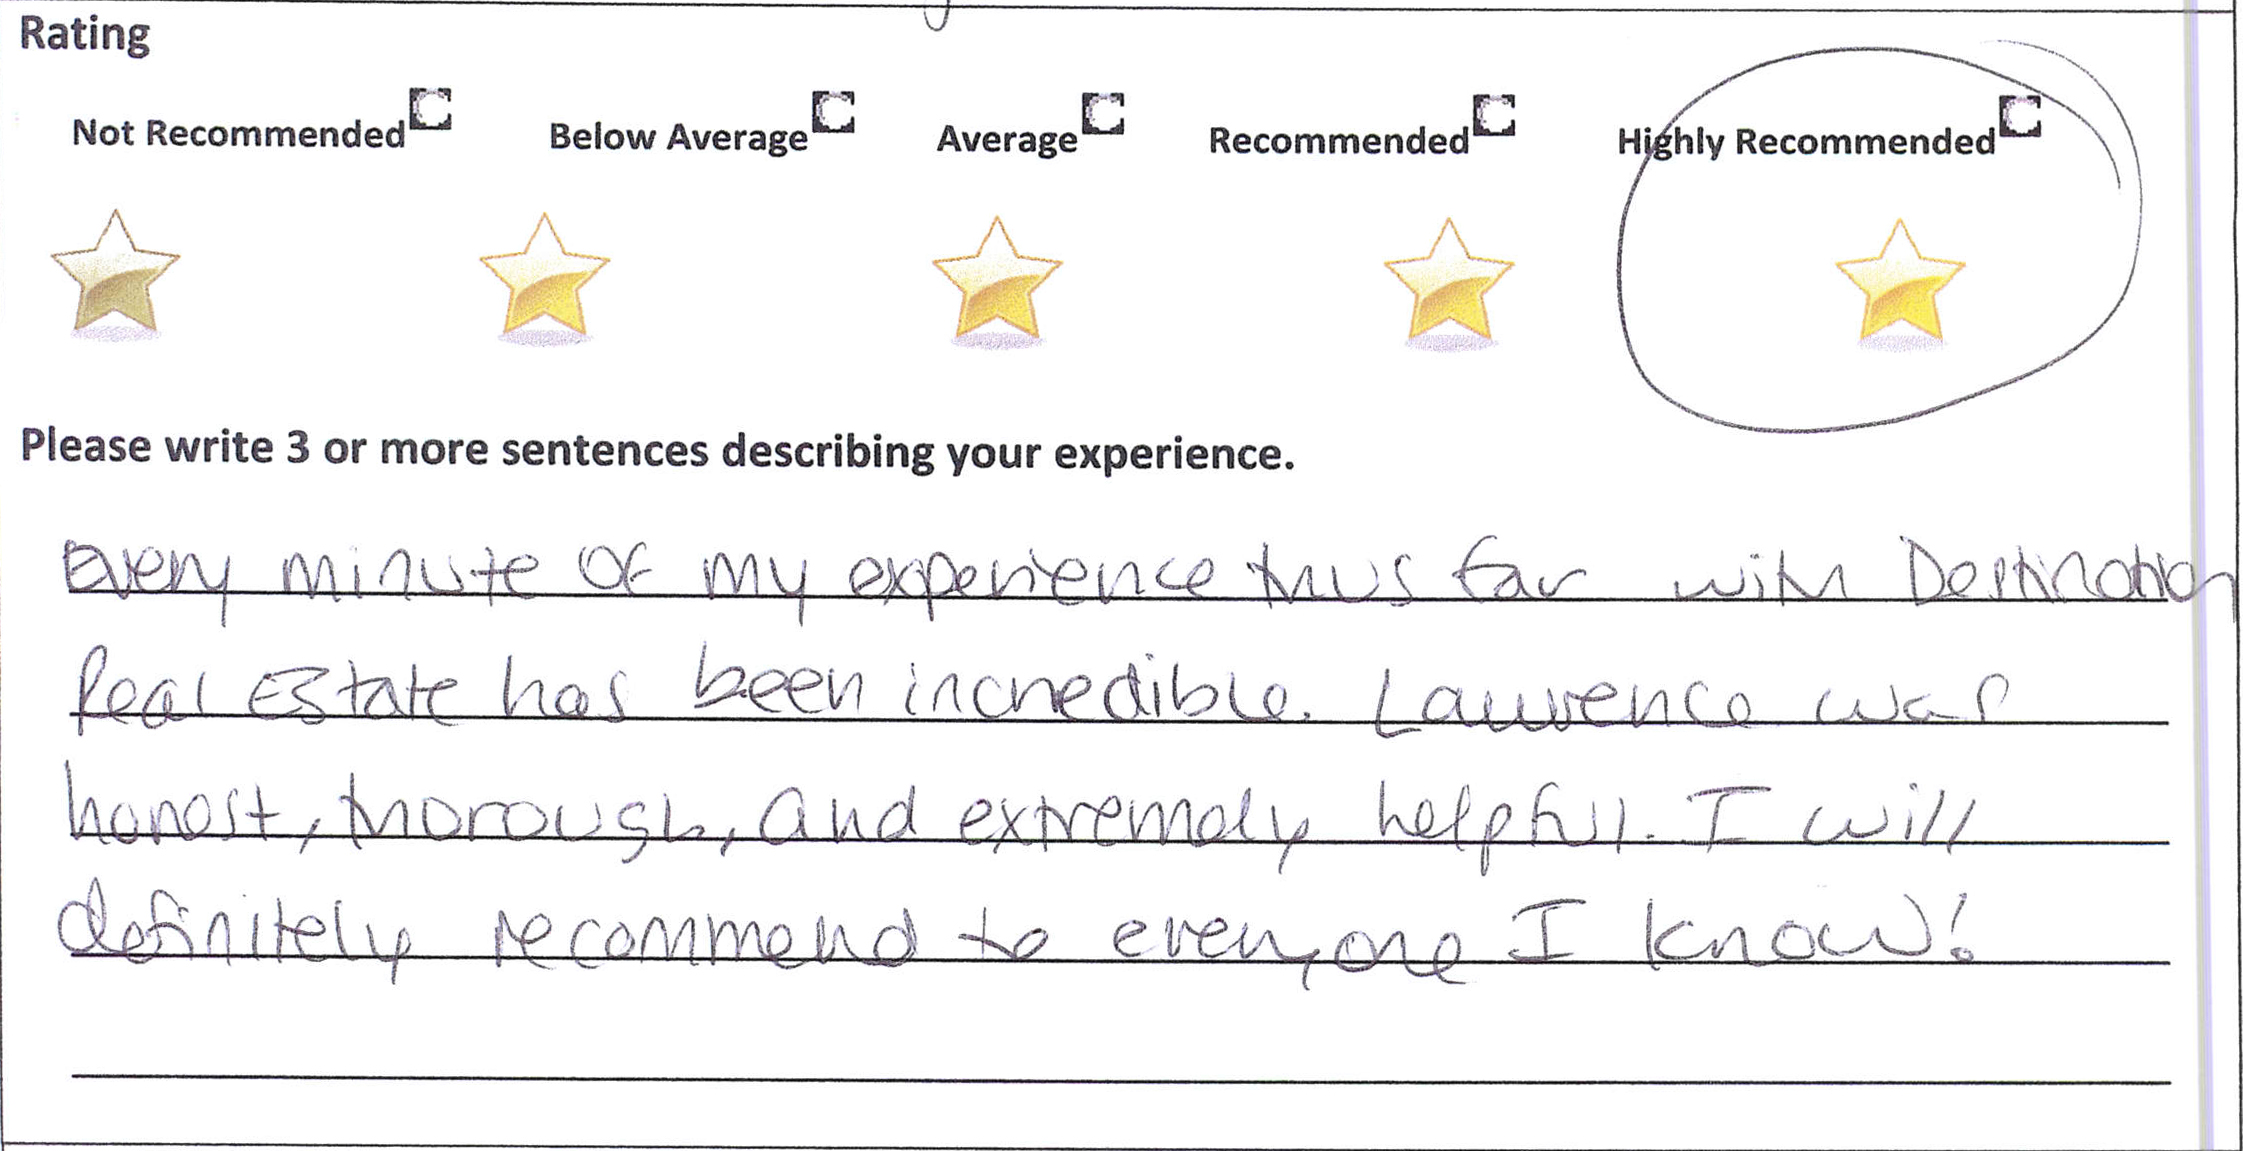 Rating
Not Recommended Below Average Average Recommended Highly Recommended
Please write 3 or more sentences describing your experience.
Every minute of my experience thus far with Destination
Real Estate has been incredible. Lawrence was
honest, thorough, and extremely helpful. I will
definitely recommend to everyone I know!